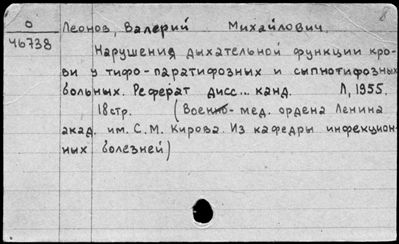 О Леонов, Валерий Михайлович. 8
46738
Нарушения дыхательной функции кро-
ви у тифо-паратифозных и сыпнотифозных
больных. Реферат дисс... канд. Л, 1955.
18стр. (Военно-мед. ордена Ленина
акад. им. С.М. Кирова. Из кафедры инфекцион-
ных болезней)